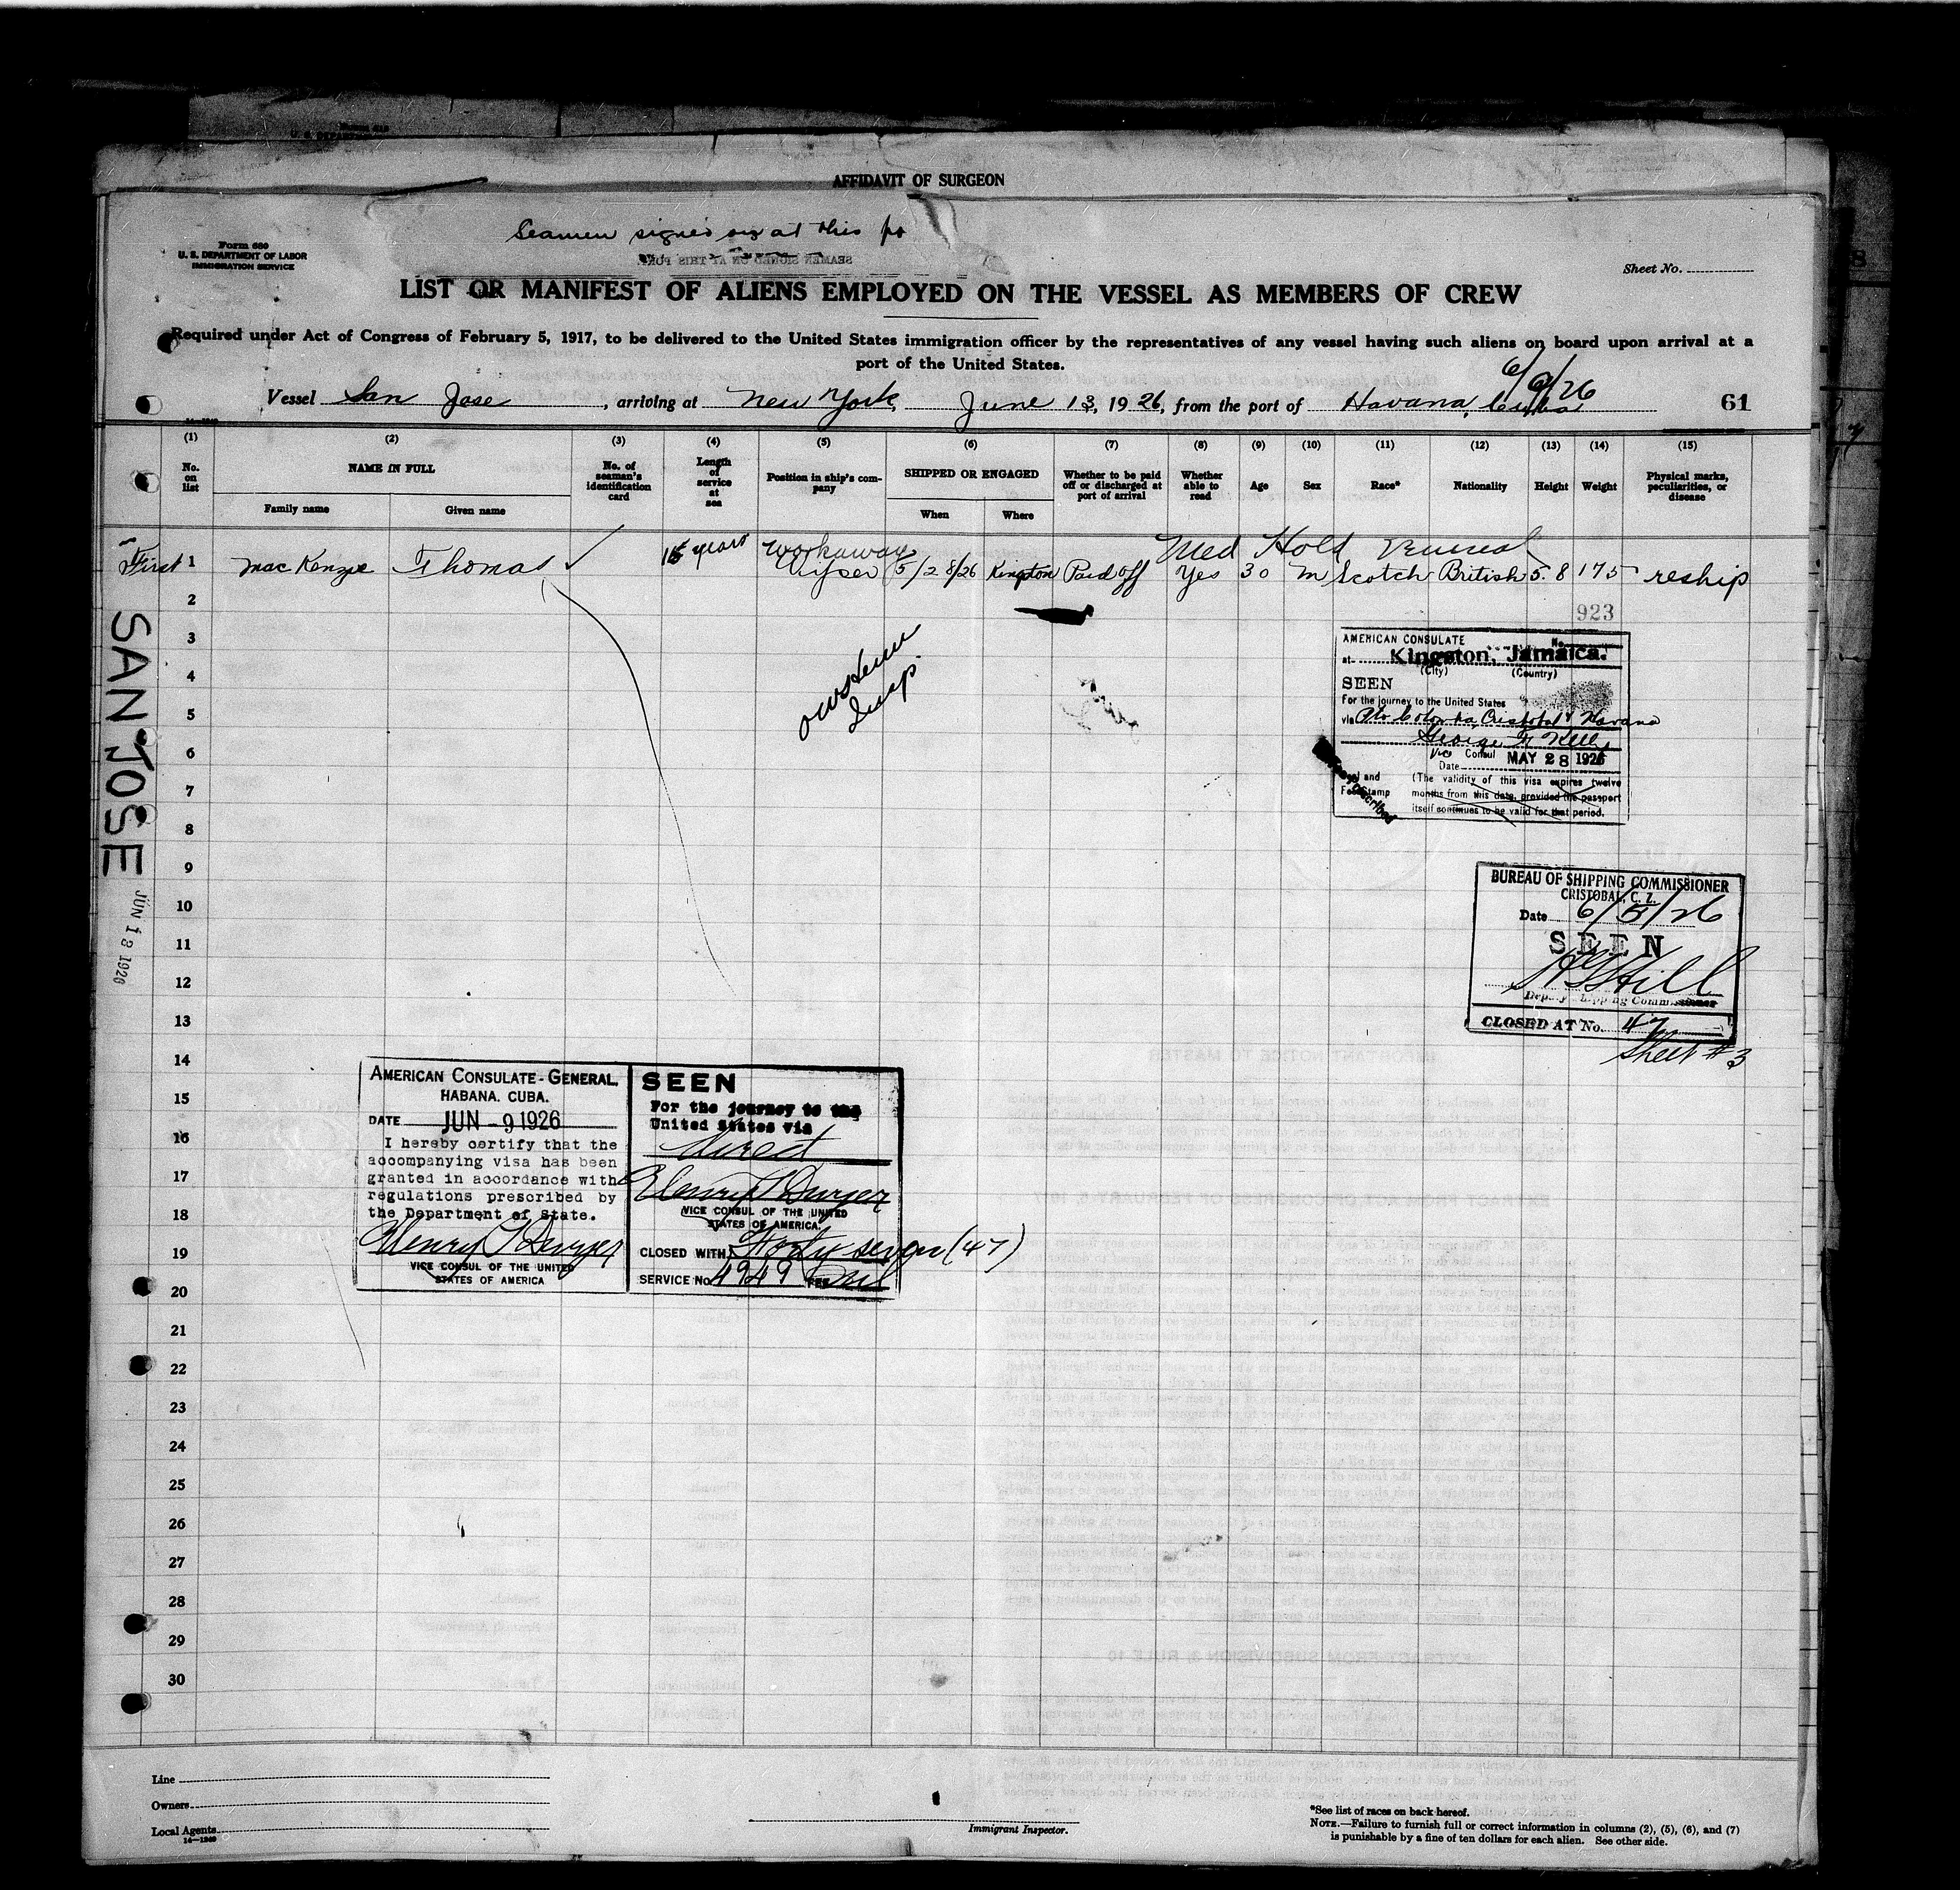 AFFIDAVIT OF SURGEON
Seamen signed on at this po
SEAMEN SIGNED ON AT THIS PORT
Form 680
U. S. DEPARTMENT OF LABOR
IMMIGRATION SERVICE
Sheet No.
LIST OR MANIFEST OF ALIENS EMPLOYED ON THE VESSEL AS MEMBERS OF CREW
Required under Act of Congress of February 5, 1917, to be delivered to the United States immigration officer by the representatives of any vessel having such aliens on board upon arrival at a
port of the United States.
6/9/26
Vessel San Jose, arriving at New York, June 13, 1926, from the port of Havana, Cuba
61
(1) (2) (3) (4) (5) (6) (7) (8) (9) (10) (11) (12) (13) (14) (15)
No. on list
NAME IN FULL
Family name
Given name
No. of seaman's identification card
Length of service at sea
Position in ship's company
SHIPPED OR ENGAGED
When
Where
Whether to be paid off or discharged at port of arrival
Whether able to read
Age
Sex
Race*
Nationality
Height
Weight
Physical marks, peculiarities, or disease
Workaway Med Hold Venereal
First 1 MacKenzie Thomas 15 years Wiper 5/28/26 Kingston Paid off Yes 30 M Scotch British 5.8 175 reship
2
923
3
4
5
6
7
8
9
10
11
12
13
14
15
16
17
18
19
20
21
22
23
24
25
26
27
28
29
30
SAN JOSE
JUN 13 1926
Insp.
AMERICAN CONSULATE
No.
at Kingston, Jamaica.
(City) (Country)
SEEN
For the journey to the United States
via Pto Colombia, Cristobal & Havana
George F. Kelly
Vice Consul
Date MAY 28 1926
(The validity of this visa expires twelve
months from this date, provided the passport
itself continues to be valid for that period.
Seal and
Fee Stamp
BUREAU OF SHIPPING COMMISSIONER
CRISTOBAL, C. Z.
Date 6/5/26
SEEN
Hill
Deputy Shipping Commissioner
CLOSED AT No. 47
Sheet #3
AMERICAN CONSULATE-GENERAL,
HABANA. CUBA.
DATE JUN -9 1926
I hereby certify that the
accompanying visa has been
granted in accordance with
regulations prescribed by
the Department of State.
Henry T Dwyer
VICE CONSUL OF THE UNITED
STATES OF AMERICA
SEEN
For the journey to the
United States via
Direct
Henry T Dwyer
VICE CONSUL OF THE UNITED
STATES OF AMERICA.
CLOSED WITH Forty seven (47)
SERVICE No. 4949 FEE nil
Line
Owners
Local Agents
14—1240
Immigrant Inspector.
*See list of races on back hereof.
NOTE.—Failure to furnish full or correct information in columns (2), (5), (6), and (7)
is punishable by a fine of ten dollars for each alien. See other side.